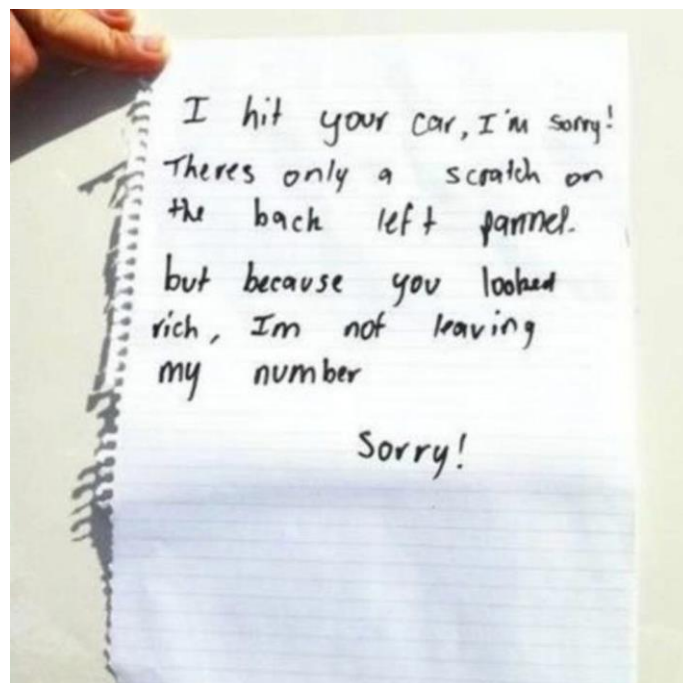 I hit your car, I'm sorry!
Theres only a scratch on
the back left pannel.
but because you looked
rich, Im not leaving
my number
Sorry!